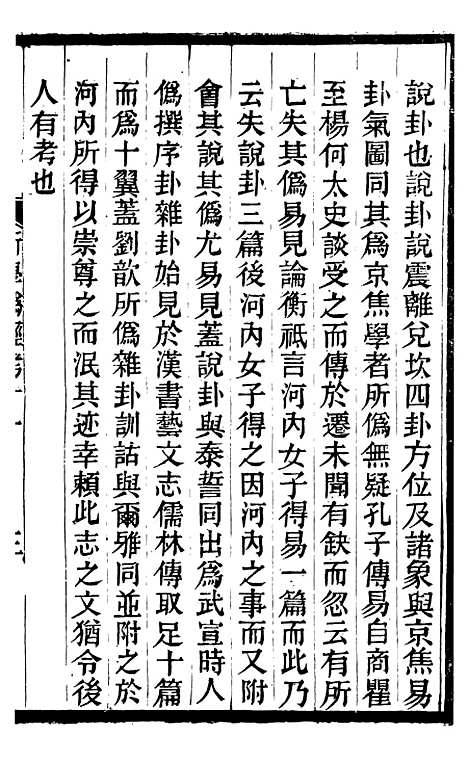 說卦也說卦說震離兌坎四卦方位及諸象與京焦易
卦氣圖同其爲京焦學者所僞無疑孔子傳易自商瞿
至楊何太史談受之而傳於遷未聞有缺而忽云有所
亡失其僞易見論衡祗言河內女子得易一篇而此乃
云失說卦三篇後河內女子得之因河內之事而又附
會其說其僞尤易見蓋說卦與泰誓同出爲武宣時人
僞撰序卦雜卦始見於漢書藝文志儒林傳取足十篇
而爲十翼蓋劉歆所僞雜卦訓詁與爾雅同並附之於
河內所得以崇尊之而泯其迹幸賴此志之文猶令後
人有考也